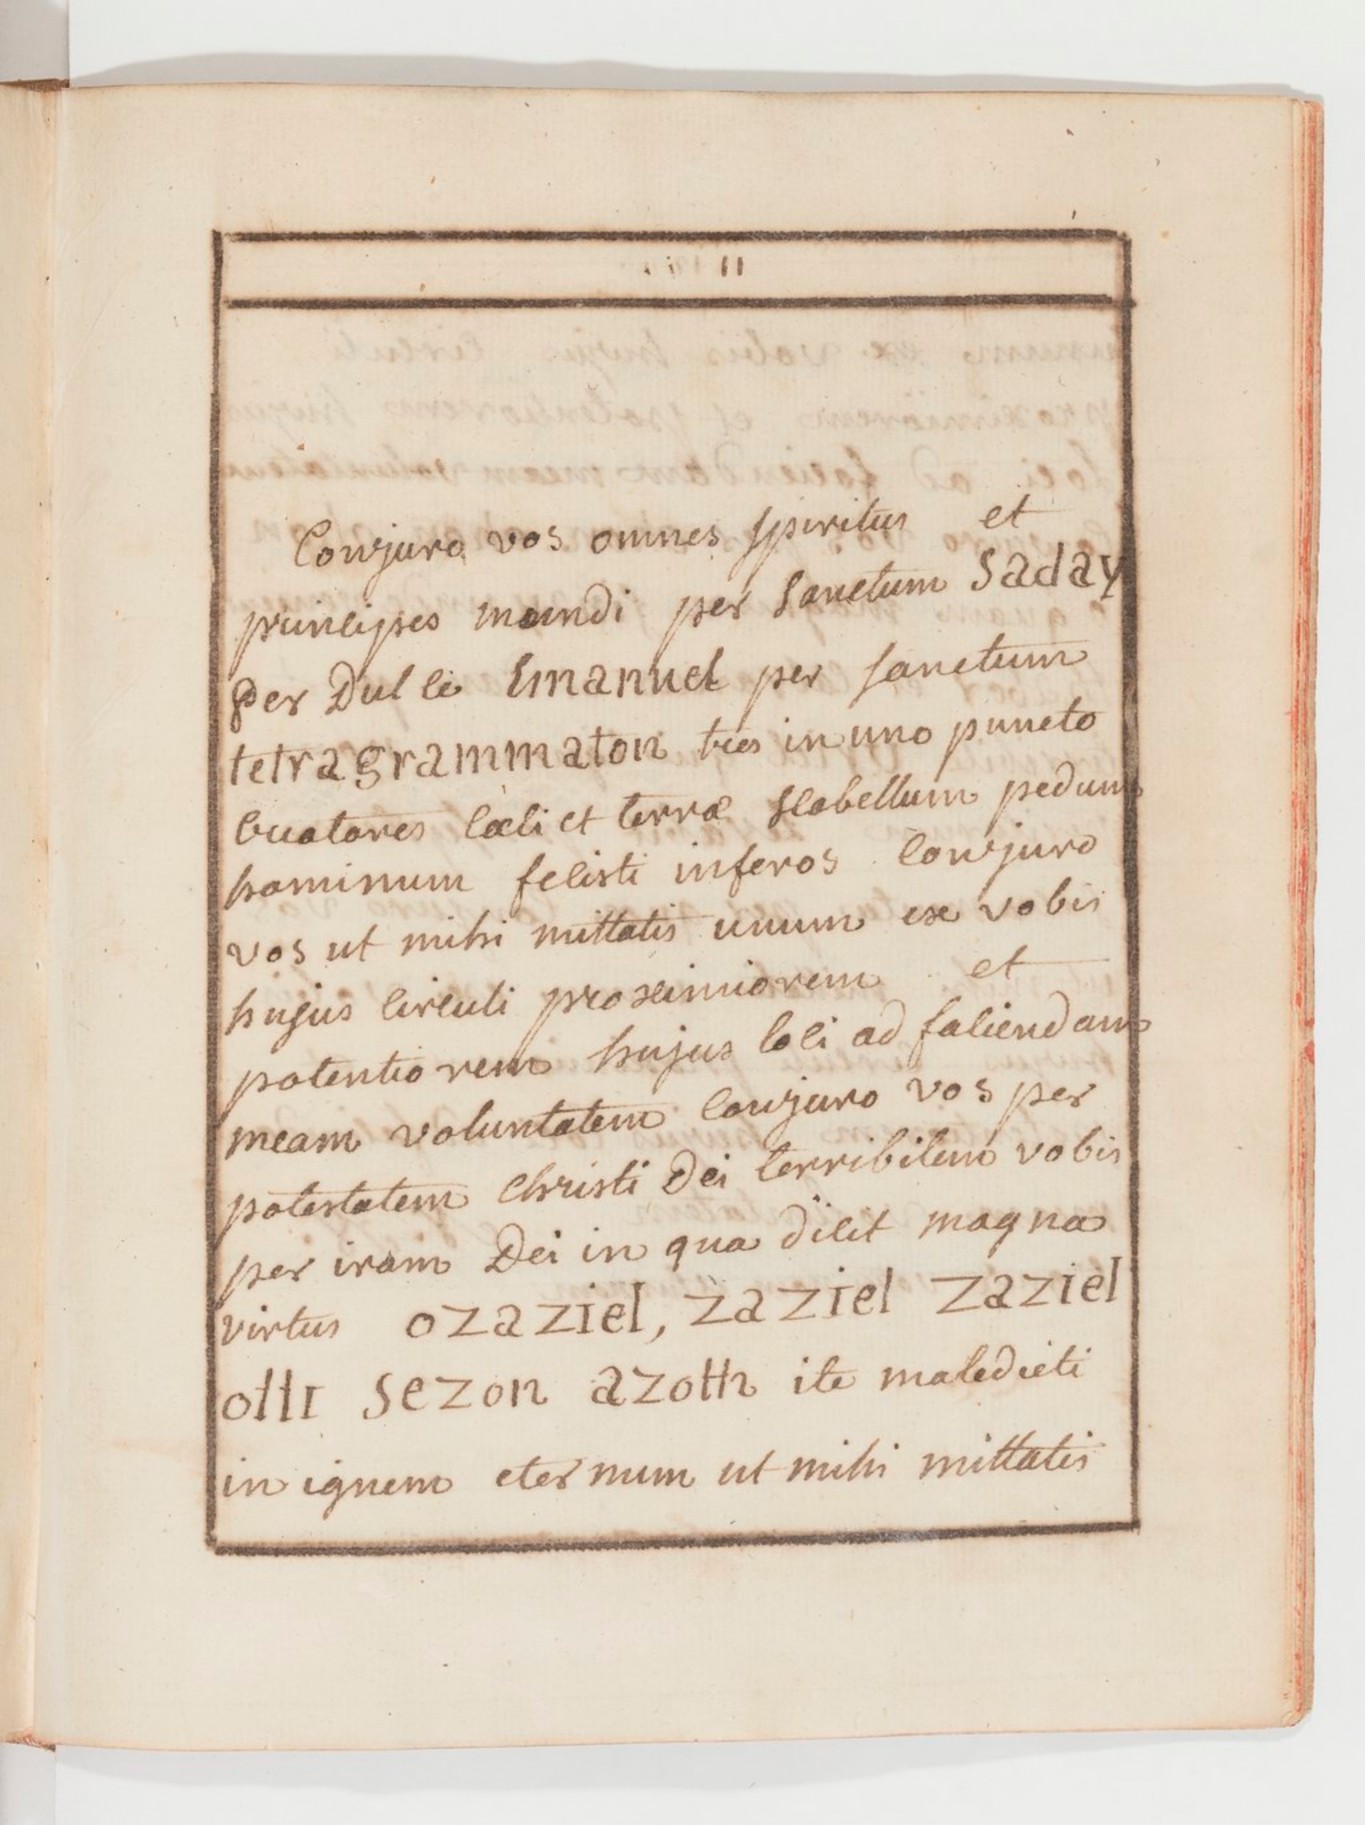 11
Conjuro vos omnes spiritus et
principes mundi per Sanctum Saday
per Dulce Emanuel per sanctum
tetragrammaton tres in uno puncto
Cuatores Cœli et terræ scabellum pedum
hominum fecisti inferos Conjuro
vos ut mihi mittatis unum ex vobis
hujus Circuli proximiorem et
potentiorem hujus loci ad faciendam
meam voluntatem Conjuro vos per
potestatem Christi Dei terribilem vobis
per iram Dei in qua dicit magna
virtus ozaziel, zaziel zaziel
sezon azoth ite maledicti
in ignem eternum ut mihi mittatis